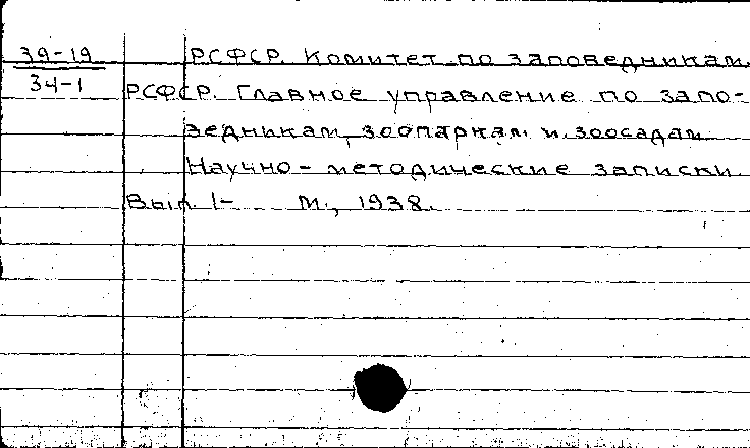 39-19 РСФСР. Комитет по заповедникам.
34-1 РСФСР. Главное управление по запо-
ведникам, зоопаркам и зоосадам
Научно-методические записки
Вып. 1- М., 1938.